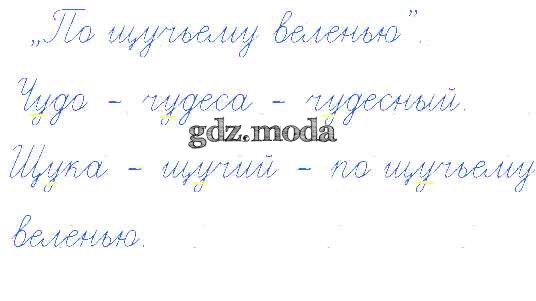 „По щучьему веленью".
Чудо - чудеса - чудесный.
gdz.moda
Щука - щучий - по щучьему
веленью.